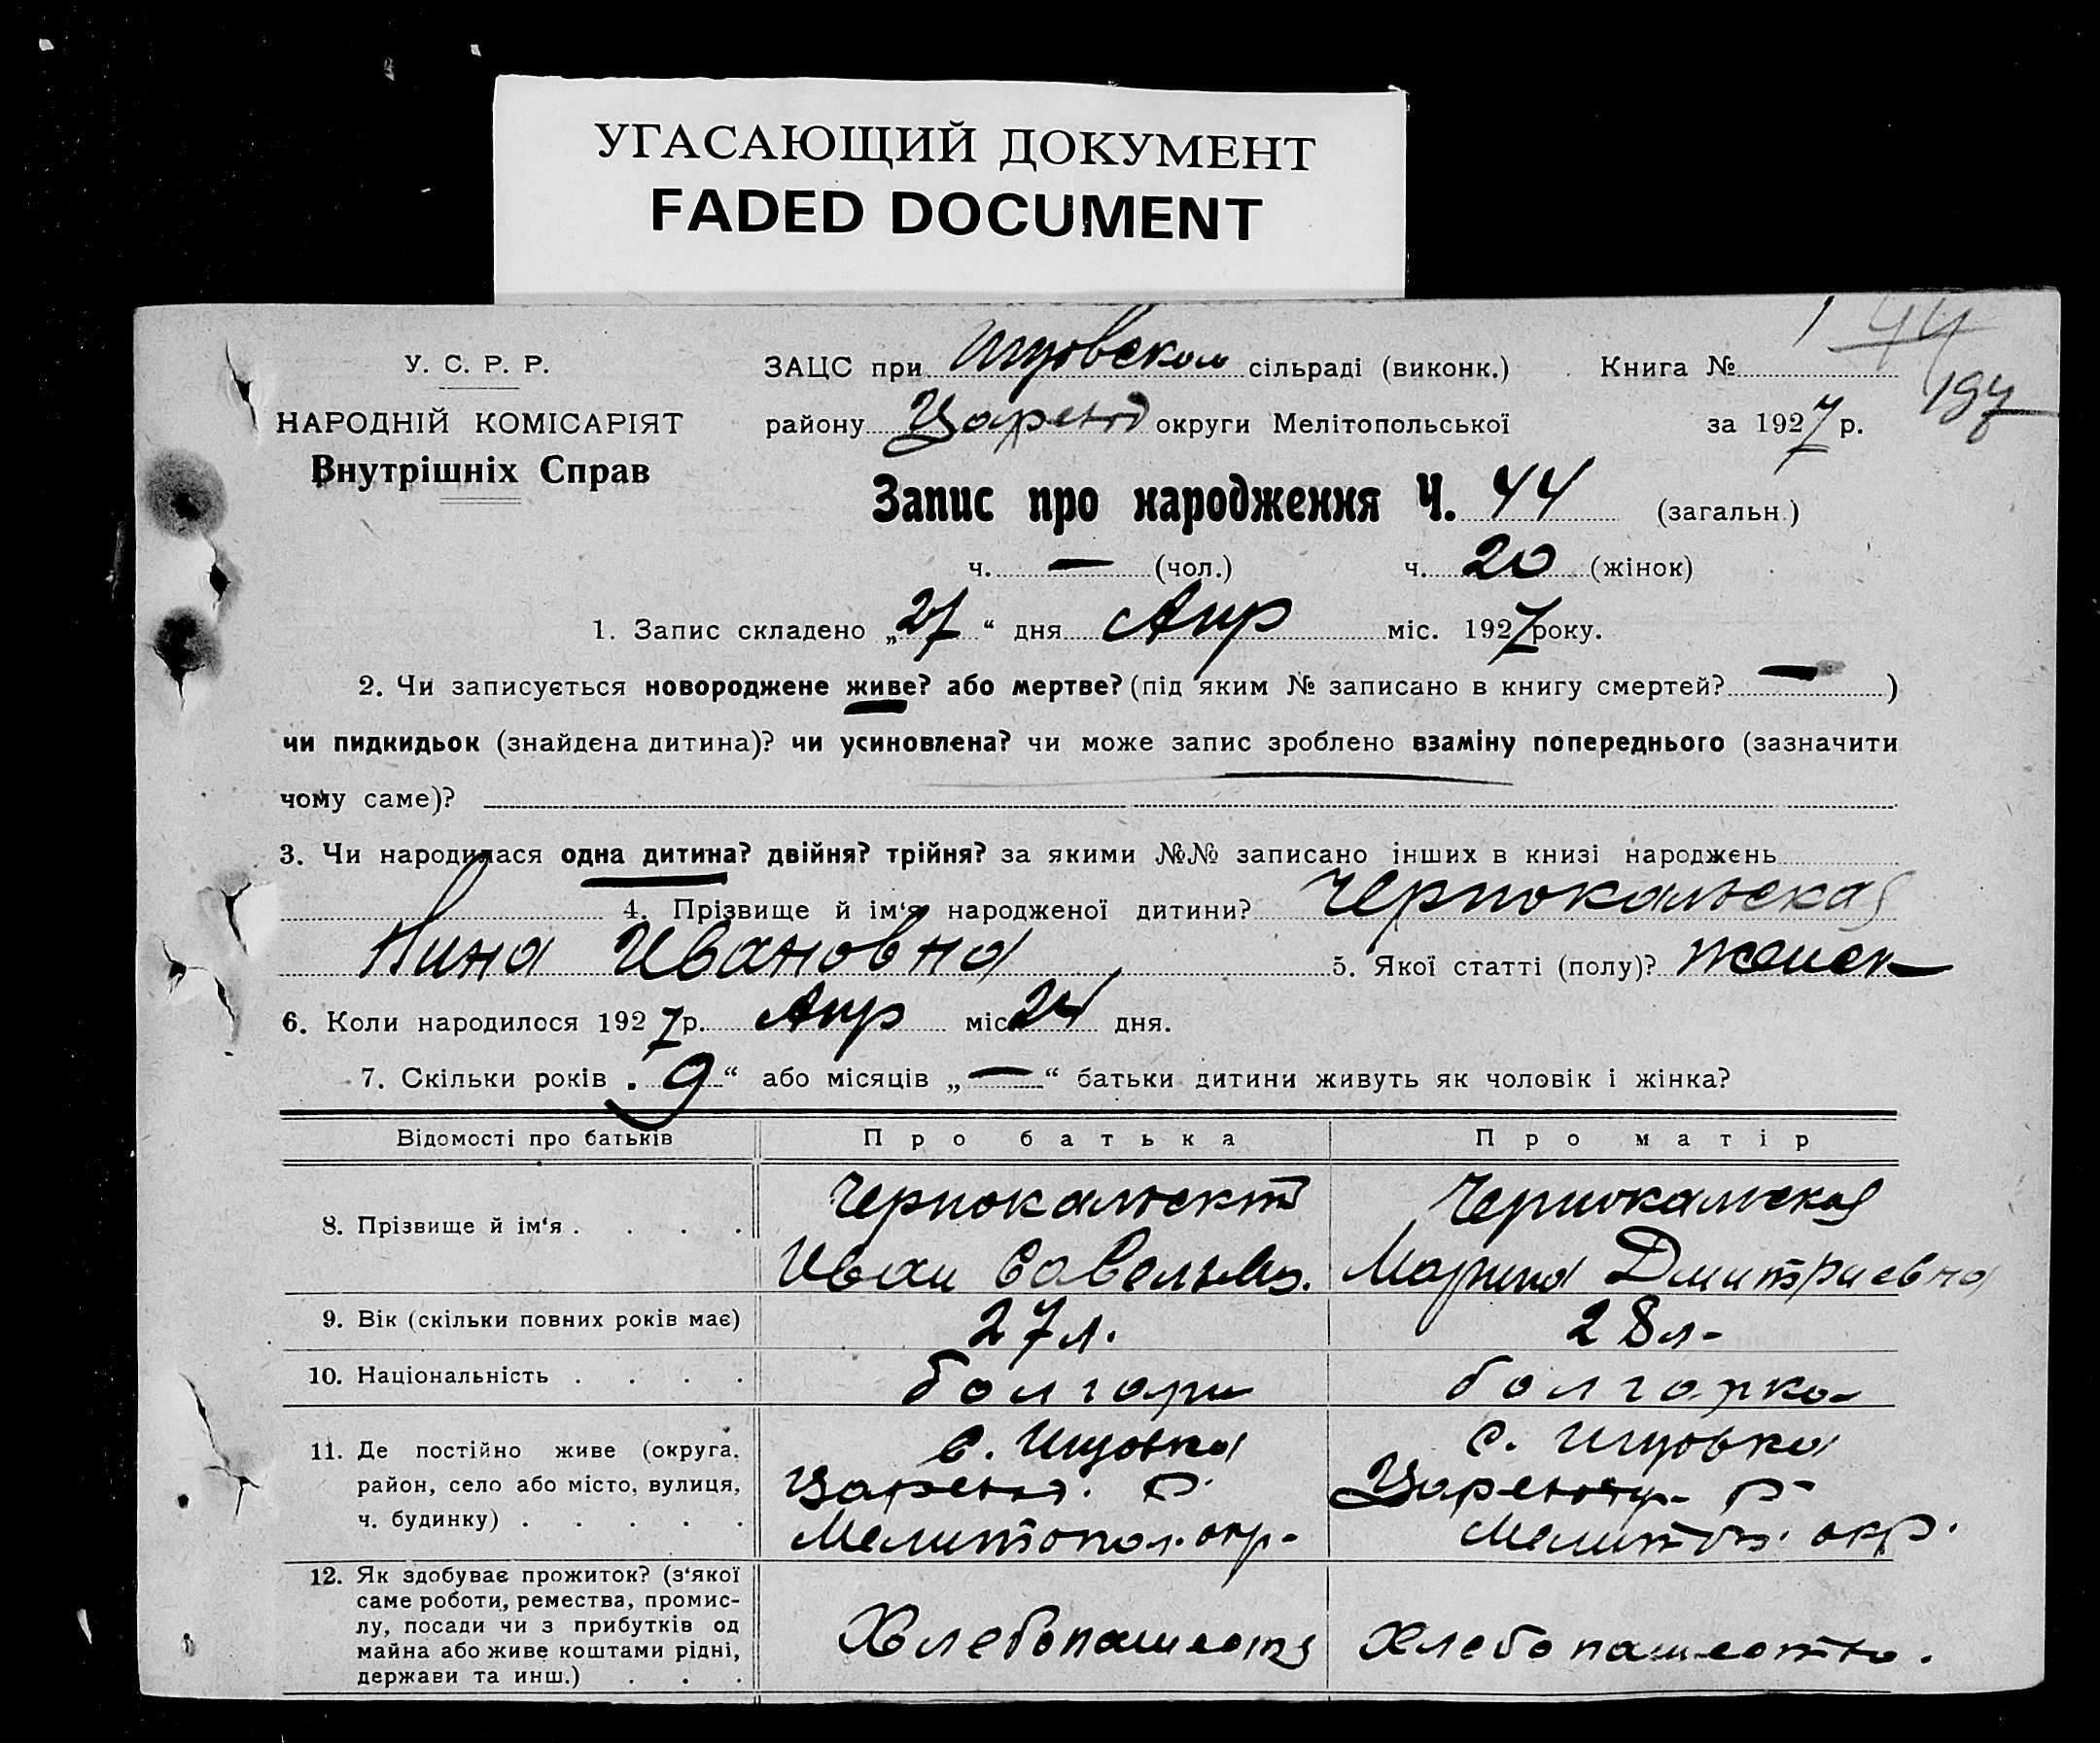 УГАСАЮЩИЙ ДОКУМЕНТ
FADED DOCUMENT
У. С. Р. Р.
НАРОДНІЙ КОМІСАРІЯТ
Внутрішніх Справ
ЗАЦС при сільраді (виконк.) Книга №
44
197
району округи Мелітопольської за 1927 р.
Запис про народження Ч. 44 (загальн.)
ч. — (чол.) ч. 20 (жінок)
1. Запис складено „27“ дня Апр міс. 1927 року.
2. Чи записується новороджене живе? або мертве? (під яким № записано в книгу смертей? — )
чи пидкидьок (знайдена дитина)? чи усиновлена? чи може запис зроблено взаміну попереднього (зазначити
чому саме)?
3. Чи народилася одна дитина? двійня? трійня? за якими №№ записано інших в книзі народжень
4. Прізвище й ім‘я народженої дитини? Чернокальская
Нина Ивановна 5. Якої статті (полу)? женск
6. Коли народилося 1927 р. Апр міс. 24 дня.
7. Скільки років „9“ або місяців „—“ батьки дитини живуть як чоловік і жінка?
Відомості про батьків Про батька Про матір
8. Прізвище й ім‘я . . . . Чернокальский Чернокальская
Иван Савельев. Марина Дмитриевна
9. Вік (скільки повних років має) 27 л. 28 л-
10. Національність . . . . болгарин болгарка
11. Де постійно живе (округа, район, село або місто, вулиця, ч. будинку) . . . . .
с. Инзовка
Р.
Мелитопол. окр-
с. Инзовка
Р-
Мелитоп. окр.
12. Як здобуває прожиток? (з‘якої саме роботи, ремества, промислу, посади чи з прибутків од майна або живе коштами рідні, держави та инш.) . . .
Хлебопашеств Хлебопашество.